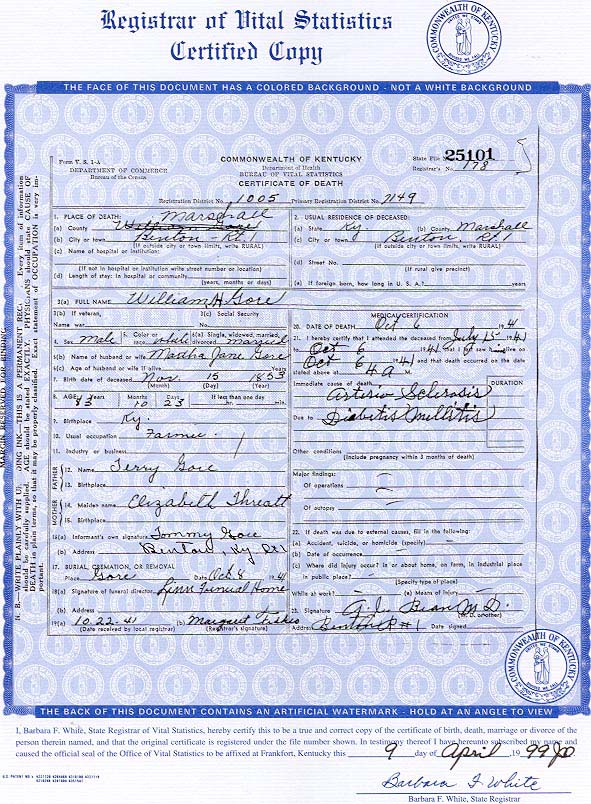 Registrar of Vital Statistics
Certified Copy
COMMONWEALTH OF KENTUCKY
UNITED WE STAND
THE FACE OF THIS DOCUMENT HAS A COLORED BACKGROUND - NOT A WHITE BACKGROUND
Form V. S. 1-A
DEPARTMENT OF COMMERCE
Bureau of the Census
COMMONWEALTH OF KENTUCKY
Department of Health
BUREAU OF VITAL STATISTICS
CERTIFICATE OF DEATH
State File No. 25101
Registrar's No. 178
Registration District No. 1005 Primary Registration District No. 7149
1. PLACE OF DEATH: Marshall
(a) County
(b) City or town Benton - Rt. 1
(If outside city or town limits, write RURAL)
(c) Name of hospital or institution:
(If not in hospital or institution write street number or location)
(d) Length of stay: In hospital or community
(years, months or days)
2. USUAL RESIDENCE OF DECEASED:
(a) State Ky. (b) County Marshall
(c) City or town Benton, Rt. 1
(If outside city or town limits, write RURAL)
(d) Street No.
(If rural give precinct)
(e) If foreign born, how long in U. S. A.? years
3(a) FULL NAME William H Gore
3(b) If veteran, 3(c) Social Security
Name war No.
4. Sex Male 5. Color or race white 6(a) Single, widowed, married, divorced married
6(b) Name of husband or wife Martha Jane Gore
6(c) Age of husband or wife if alive Years
7. Birth date of deceased Nov. 15 1853
(Month) (Day) (Year)
8. AGE: Years Months Days If less than one day
83 10 23 hr. min.
9. Birthplace Ky.
10. Usual occupation Farmer
11. Industry or business
FATHER
12. Name Jerry Gore
13. Birthplace
MOTHER
14. Maiden name Elizabeth Threatt
15. Birthplace
16(a) Informant's own signature Tommy Gore
(b) Address Benton, Ky Rt 1
17. BURIAL, CREMATION, OR REMOVAL
Place Gore Date Oct 8 1941
18(a) Signature of funeral director Linn Funeral Home
(b) Address
19(a) 10-22-41 (b) Margaret
(Date received by local registrar) (Registrar's signature)
MEDICAL CERTIFICATION
20. DATE OF DEATH Oct 6 1941
21. I hereby certify that I attended the deceased from July 15 1941
to Oct 6 1941 that I last saw alive on
Oct 6 1941 and that death occurred on the date
stated above at 4 a M.
DURATION
Immediate cause of death
Arterio Sclerosis
Due to Diabetis Mellitis
Other conditions
(Include pregnancy within 3 months of death)
Major findings:
Of operations
Of autopsy
22. If death was due to external causes, fill in the following:
(a) Accident, suicide, or homicide (specify)
(b) Date of occurrence
(c) Where did injury occur? in or about home, on farm, in industrial place
in public place?
(Specify type of place)
While at work? (e) Means of Injury
23. Signature Bean M.D.
(M. D. or other)
Address Benton R #1 Date signed
MARGIN RESERVED FOR BINDING
COMMONWEALTH OF KENTUCKY
UNITED WE STAND
THE BACK OF THIS DOCUMENT CONTAINS AN ARTIFICIAL WATERMARK - HOLD AT AN ANGLE TO VIEW
I, Barbara F. White, State Registrar of Vital Statistics, hereby certify this to be a true and correct copy of the certificate of birth, death, marriage or divorce of the
person therein named, and that the original certificate is registered under the file number shown. In testimony thereof I have hereunto subscribed my name and
caused the official seal of the Office of Vital Statistics to be affixed at Frankfort, Kentucky this 9 day of April 1999
Barbara F. White
Barbara F. White, State Registrar